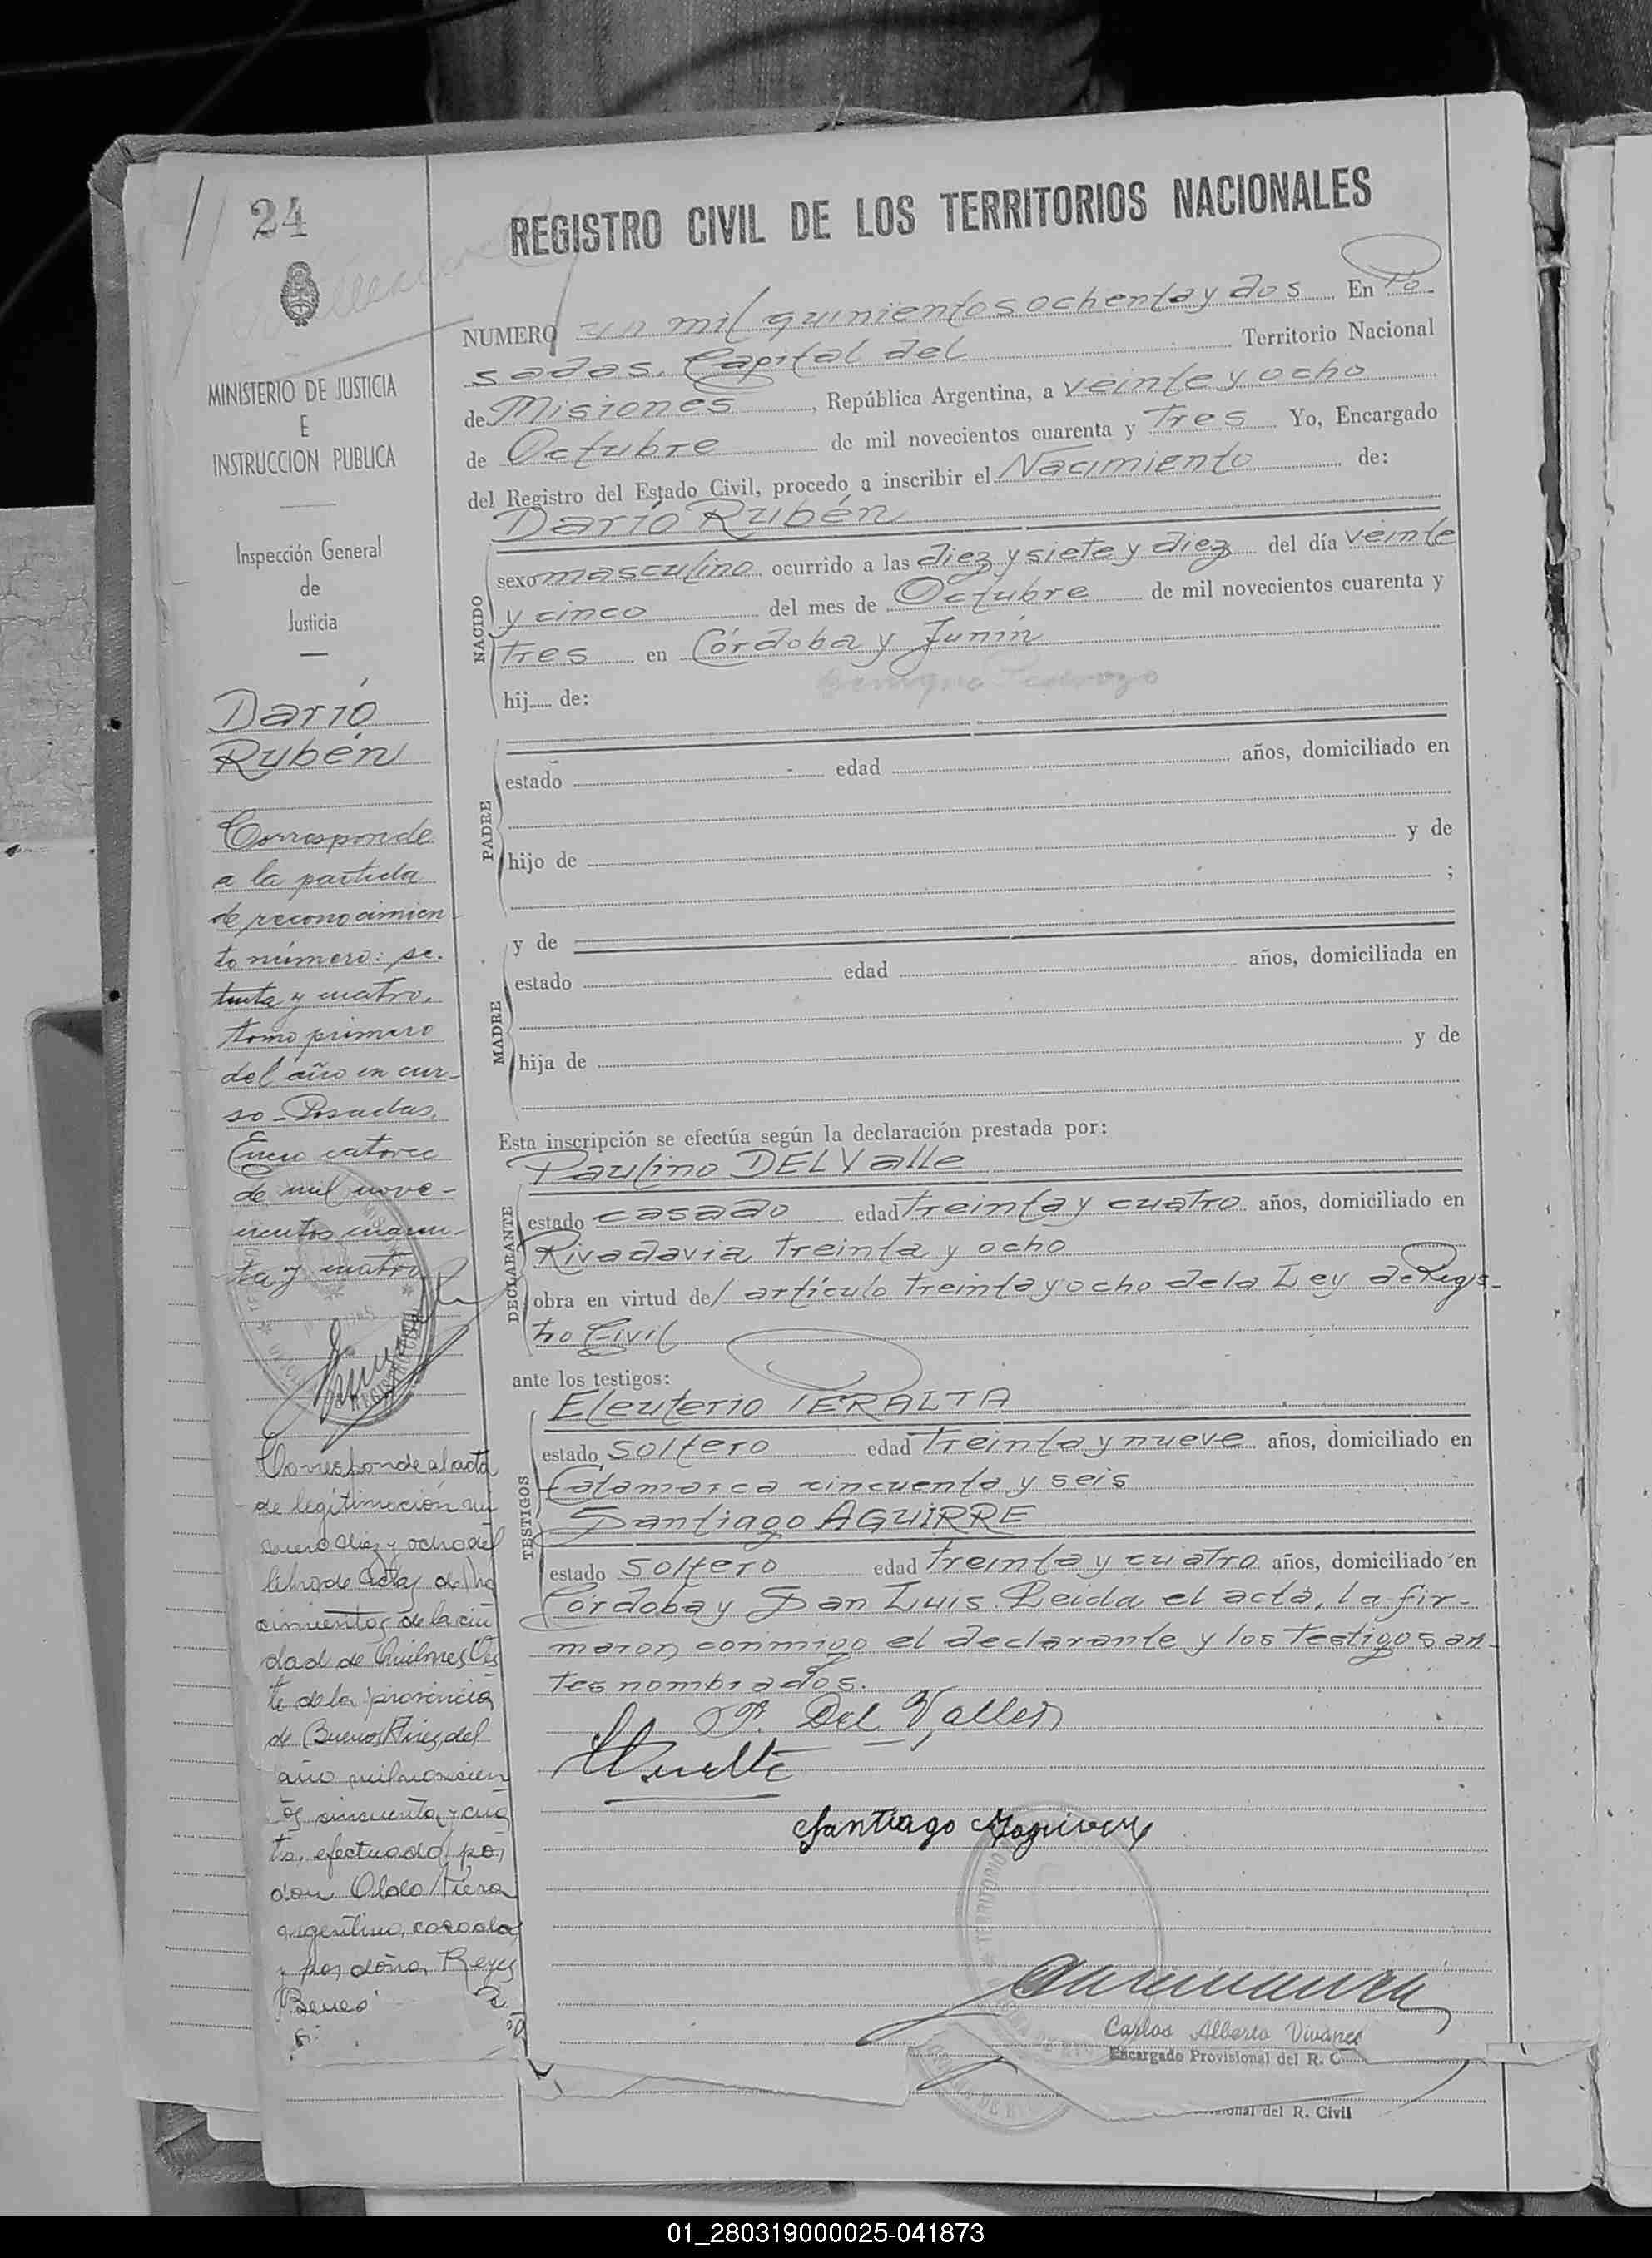 24
REGISTRO CIVIL DE LOS TERRITORIOS NACIONALES
MINISTERIO DE JUSTICIA
E
INSTRUCCION PUBLICA
Inspección General
de
Justicia
Darío
Rubén
Corresponde
a la partida
de reconocimien
to número: se-
tenta y cuatro,
tomo primero
del año en cur-
so - Posadas,
Enero catorce
de mil nove-
cientos cuaren-
ta y cuatro
Corresponde al acta
de legitimación nu
mero diez y ocho del
libro de actas de Na
cimientos de la ciu
dad de Quilmes Oes
te de la provincia
de Buenos Aires, del
año mil novecien
tos cincuenta y cua
tro, efectuado por
don
argentino, casado
por doña Reyes
NUMERO un mil quinientos ochenta y dos En Po-
sadas. Capital del Territorio Nacional
de Misiones, República Argentina, a veinte y ocho
de Octubre de mil novecientos cuarenta y tres Yo, Encargado
del Registro del Estado Civil, procedo a inscribir el Nacimiento de:
Darío Rubén
NACIDO
sexo masculino ocurrido a las diez y siete y diez del día veinte
y cinco del mes de Octubre de mil novecientos cuarenta y
tres en Córdoba y Junín
hij de:
PADRE
estado edad años, domiciliado en
hijo de y de
;
y de
MADRE
estado edad años, domiciliada en
hija de y de
Esta inscripción se efectúa según la declaración prestada por:
Paulino DELValle
DECLARANTE
estado casado edad treinta y cuatro años, domiciliado en
Rivadavia treinta y ocho
obra en virtud del artículo treinta y ocho de la Ley de Regis-
tro Civil
ante los testigos:
Eleuterio PERALTA
TESTIGOS
estado soltero edad treinta y nueve años, domiciliado en
Catamarca cincuenta y seis
Santiago AGUIRRE
estado soltero edad treinta y cuatro años, domiciliado en
Córdoba y San Luis. Leída el acta, la fir-
maron conmigo el declarante y los testigos an-
tes nombrados.
P. Del Valle
Santiago Aguirre
Carlos Alberto Vivanco
Encargado Provisional del R. C
onal del R. Civil
01_280319000025-041873